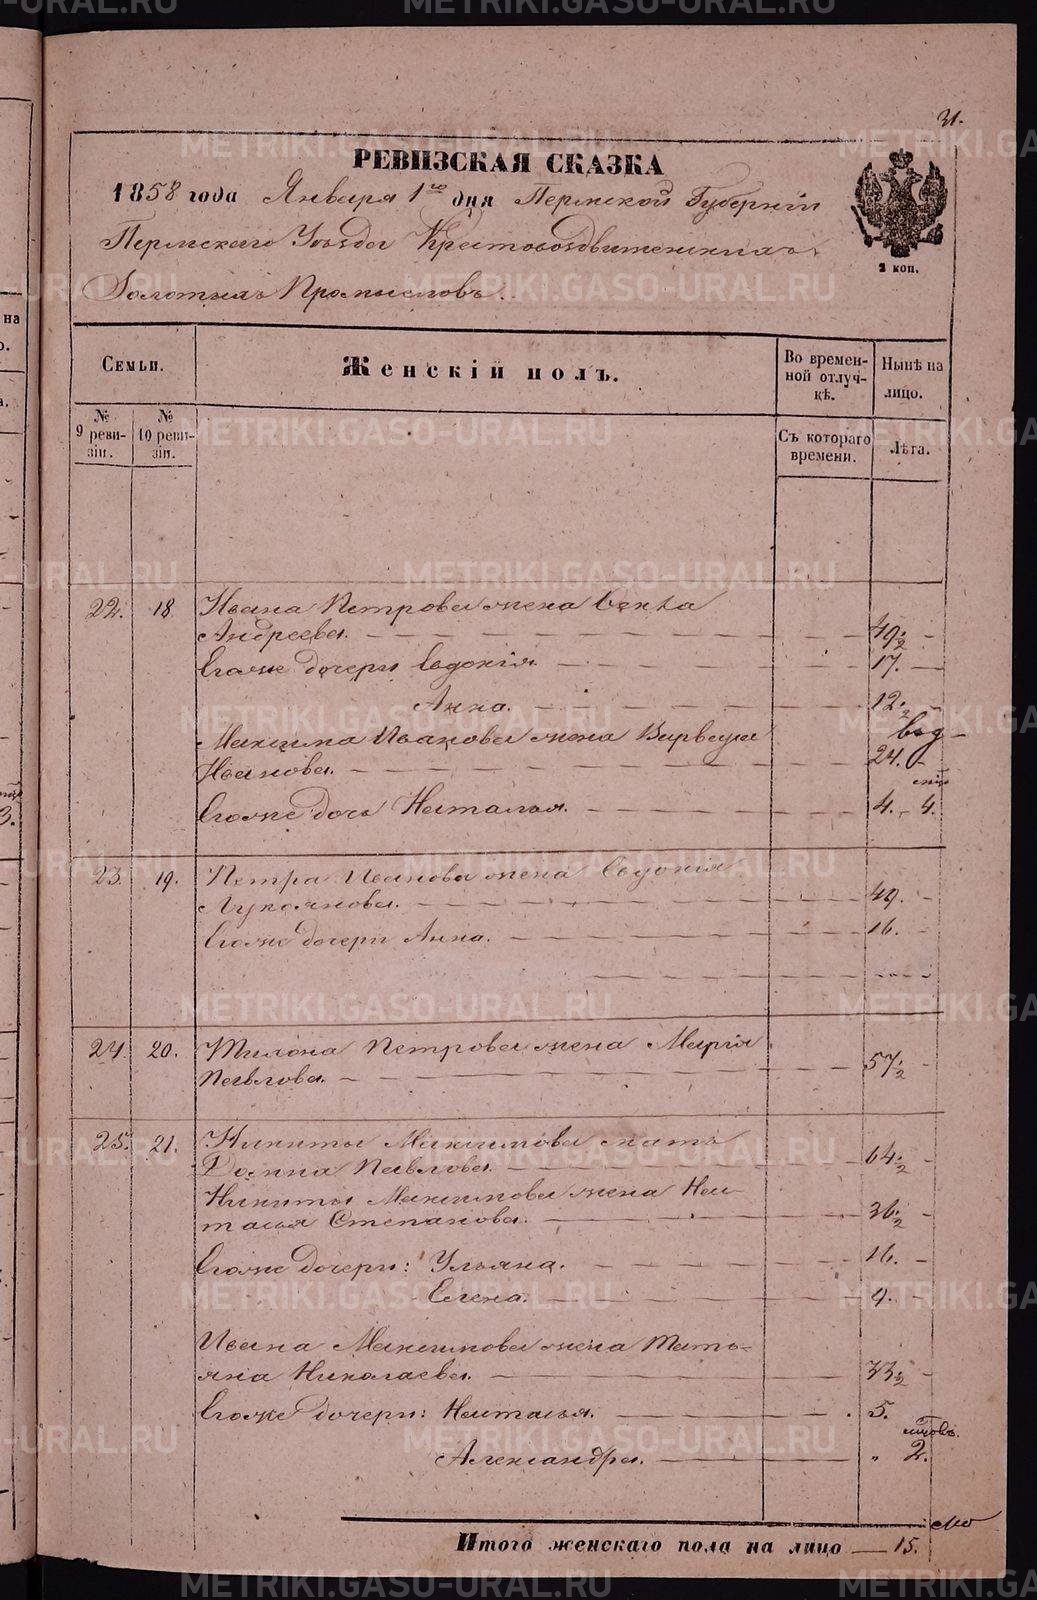 METRIKI.GASO-URAL.RU
31.
РЕВИЗСКАЯ СКАЗКА
1858 года Января 1го дня Пермской Губерніи
Пермскаго Уѣзда Крестовоздвиженскихъ
Золотыхъ Промысловъ.
2 коп.
Семьи.
Женскій полъ.
Во времен-
ной отлуч-
кѣ.
Нынѣ на
лицо.
№
9 реви-
зіи.
№
10 реви-
зіи.
Съ котораго
времени.
Лѣта.
22. 18 Ивана Петрова жена Фекла
Андреева. 49 1/2
Егоже дочери Евдокія 17.
Анна. 12 1/2
Максима Иванова жена Варвара
Иванова. 24.
Егоже дочь Наталья. 4. 4.
23. 19. Петра Иванова жена Евдокія
Лукоянова. 49.
Егоже дочери Анна. 16.
24 20. Тихона Петрова жена Марія
Павлова. 57 1/2
25. 21. Никиты Максимова мать
Домна Павлова. 64 1/2
Никиты Максимова жена На-
талья Степанова. 36 1/2
Егоже дочери: Ульяна. 16.
Елена. 9.
Ивана Максимова жена Тать-
яна Николаева. 33 1/2
Егоже дочери: Наталья. 5.
Александра. " 2.
Итого женскаго пола на лицо 15.